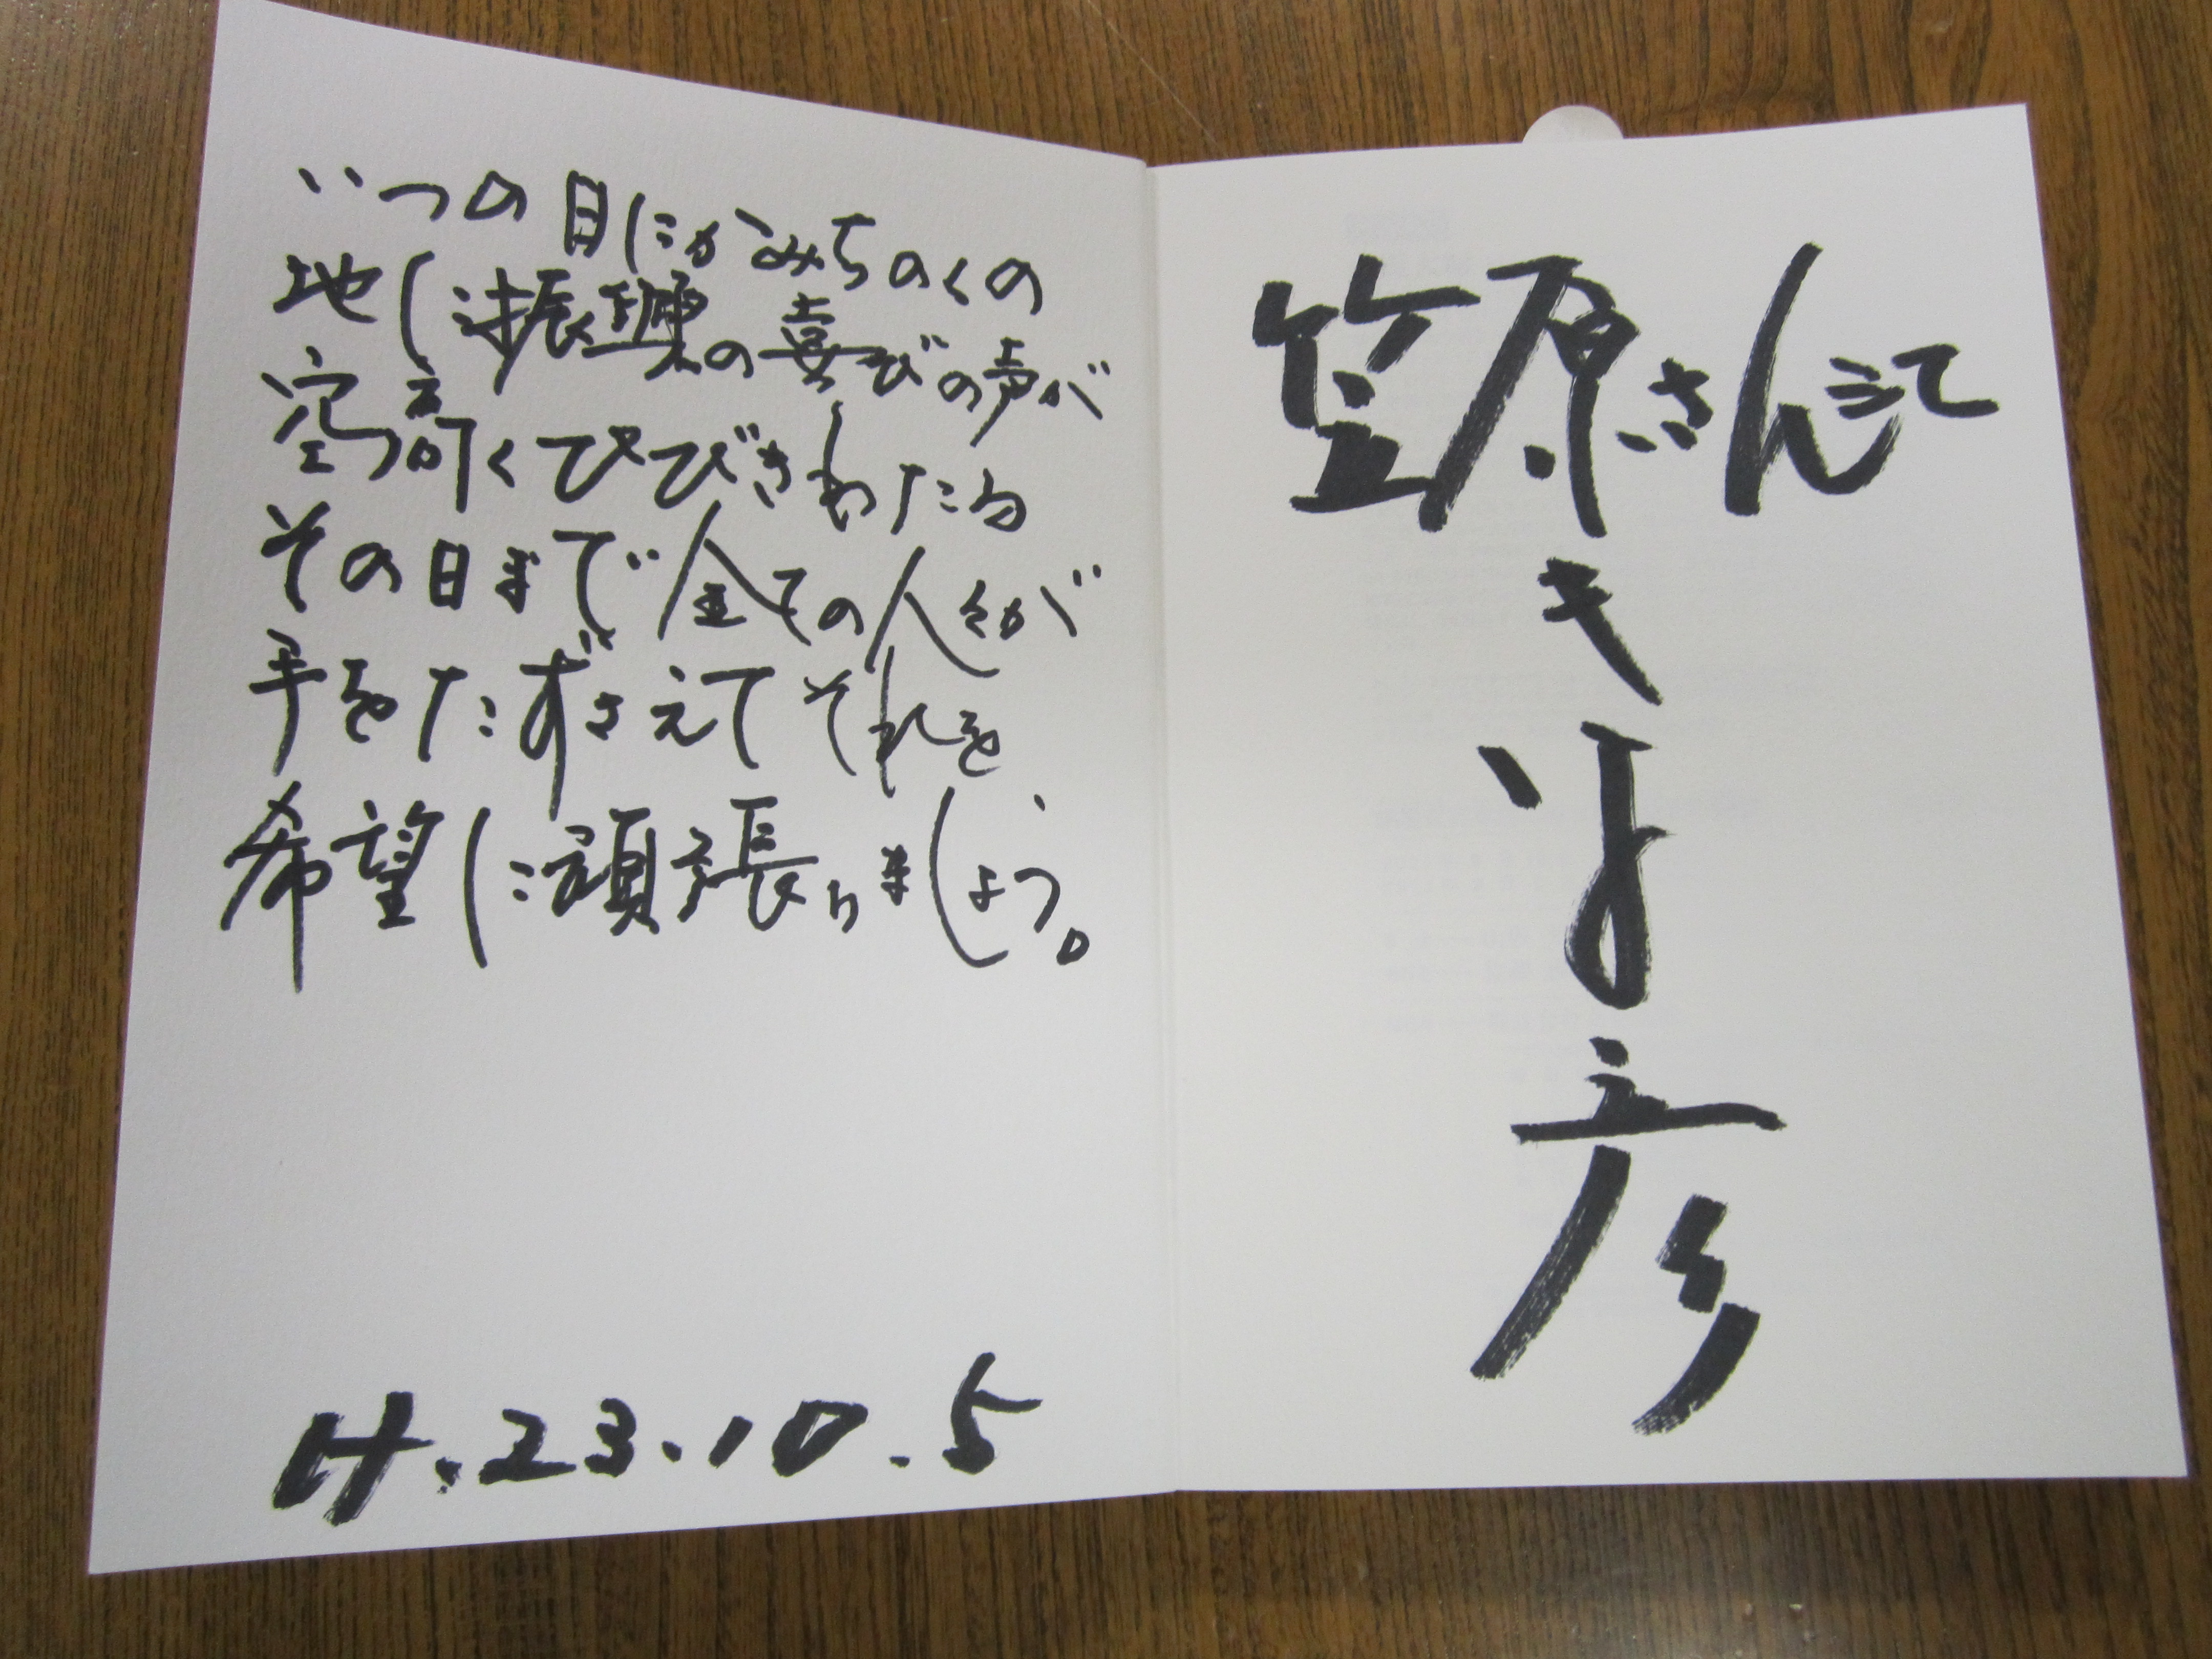 いつの日にかみちのくの
地にの喜びの声が
空高くひびきわたる
その日まで全ての人々が
手をたずさえてそれを
希望に頑張りましょう。
H.23.10.5
笠原さん
き
彦